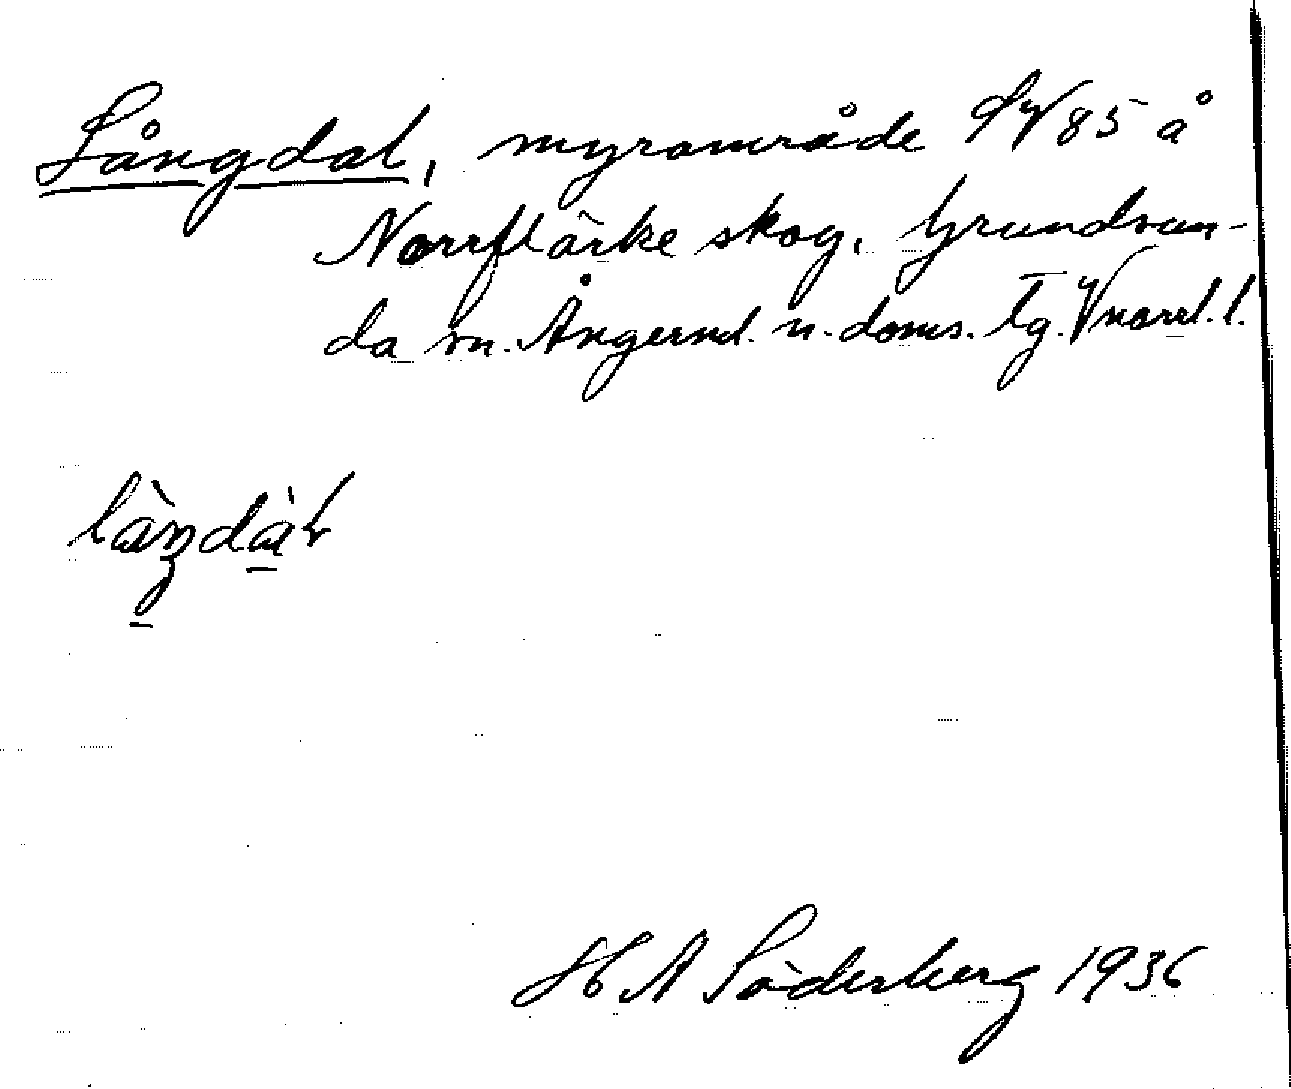 Långdal, myrområde SV 85 å
Norrflärke skog. Grundsun-
da sn. Ångermd. n. doms. Tg. Vnorrl. l.
H A Söderberg 1936